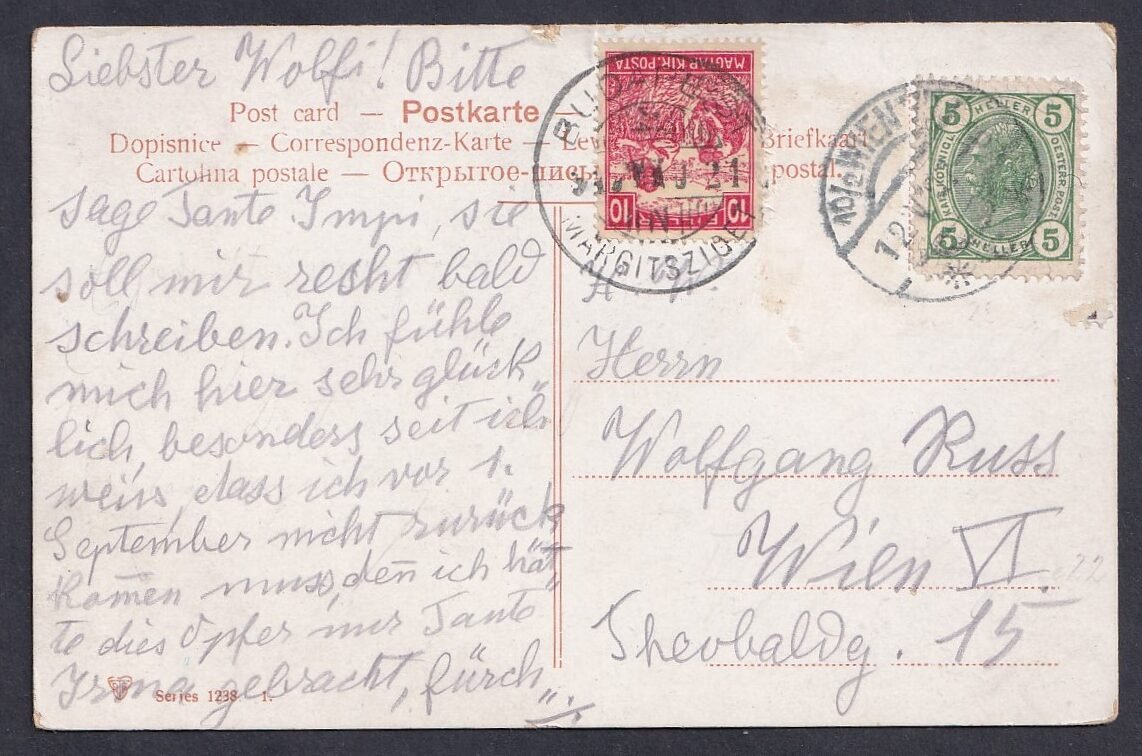 Liebster Wolfi! Bitte
Post card — Postkarte
Dopisnice — Correspondenz-Karte — Le Briefkaart
Cartolina postale — Открытое-письм postal.
sage Tante Impi, sie
soll mir recht bald
schreiben. Ich fühle
mich hier sehr glück„
lich, besonders seit ich
weiss, dass ich vor 1.
September nicht zurück
kom̄en muss, den̄ ich hät„
te dies Opfer nur Tante
Irma gebracht, fürch„
Series 1238. 1.
MAGYAR KIR. POSTA
10 FILLÉR 10
BUDAPEST
21
MARGITSZIGET
10/2 WIEN
5 HELLER 5
KAIS. KÖNIGL. OESTERR. POST
5 HELLER 5
Herrn
Wolfgang Russ
Wien VI.
Theobaldg. 15
22